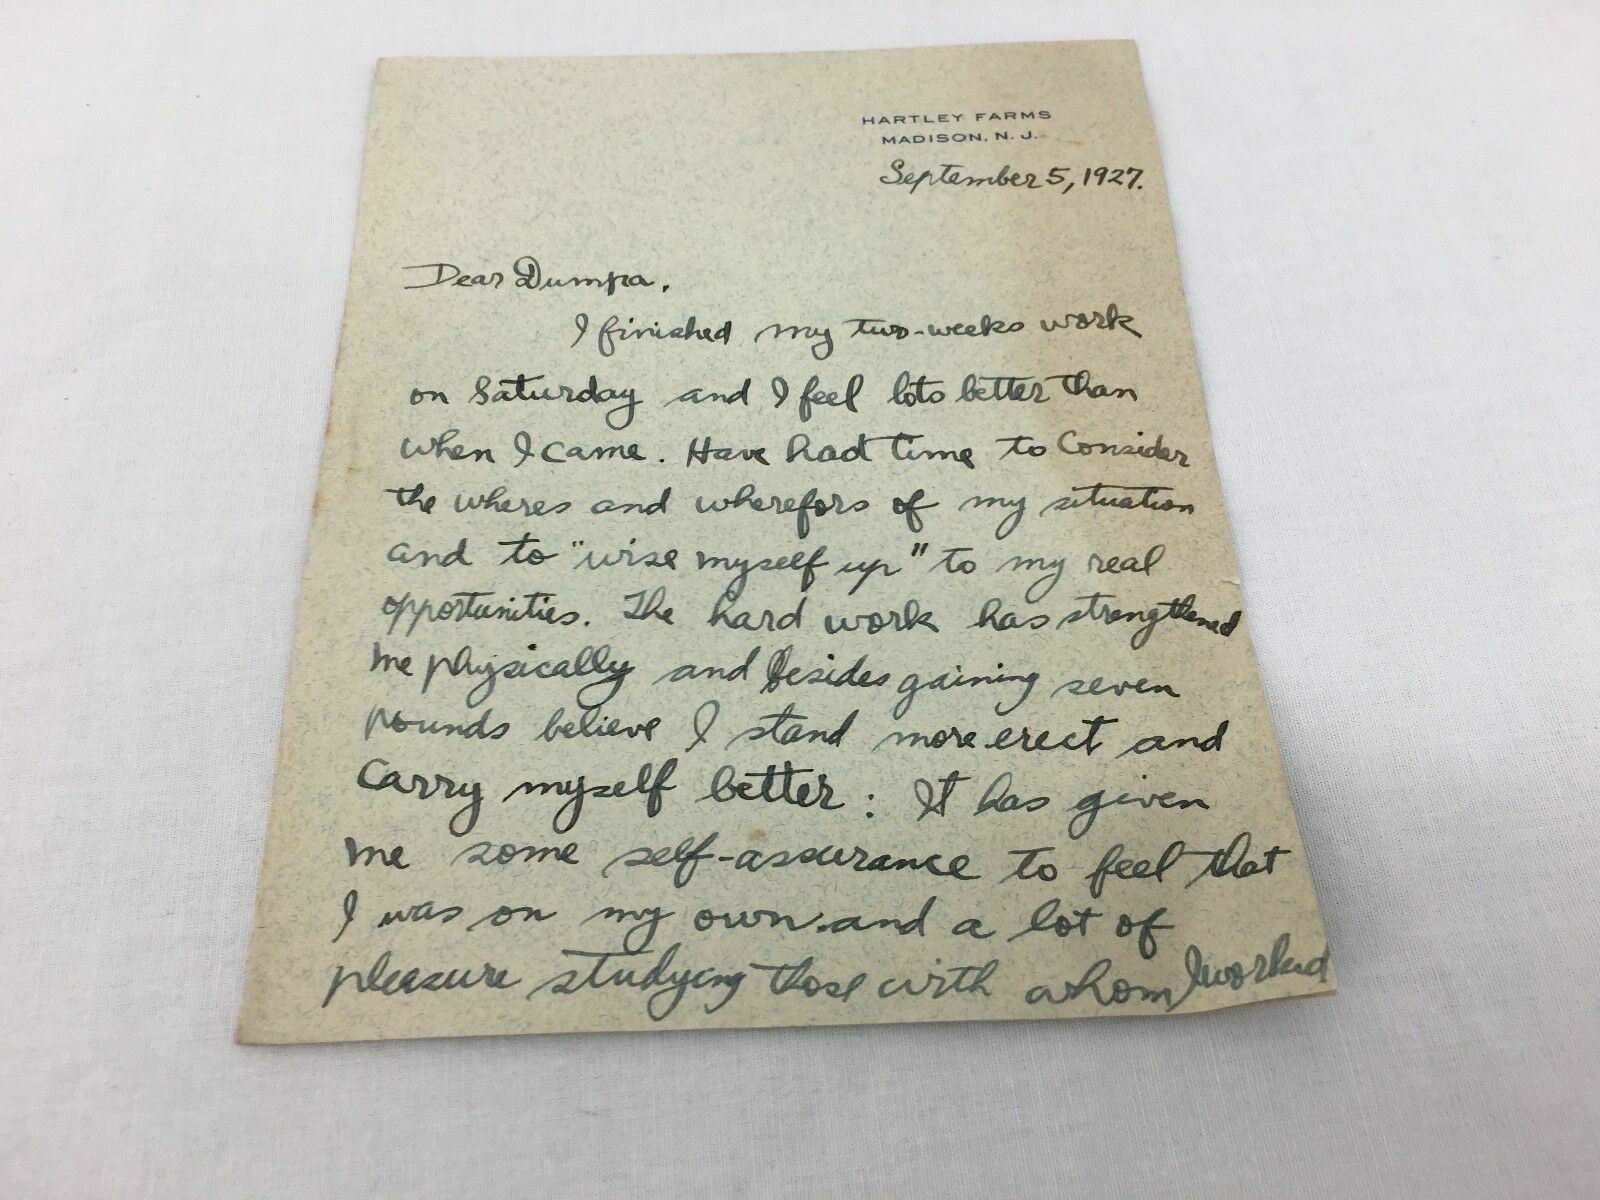 HARTLEY FARMS
MADISON, N. J.
September 5, 1927.
Dear Dumpa,
I finished my two-weeks work
on Saturday and I feel lots better than
when I came. Have had time to Consider
the wheres and wherefors of my situation
and to "wise myself up" to my real
opportunities. The hard work has strengthened
me physically and besides gaining seven
pounds believe I stand more erect and
carry myself better: It has given
me some self-assurance to feel that
I was on my own and a lot of
pleasure studying those with whom I worked